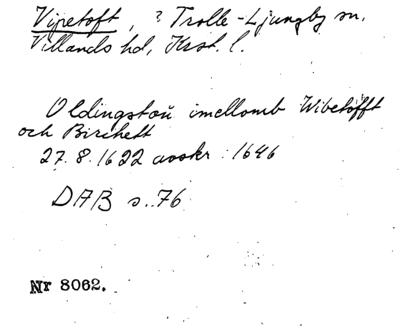 Vipetoft, ? Trolle-Ljungby sn,
Villands hd, Krst. l.
Oldingstoũ imellomb Wibetofft
och Birchett
27.8.1622 avskr. 1646
DAB s. 76
Nr 8062.